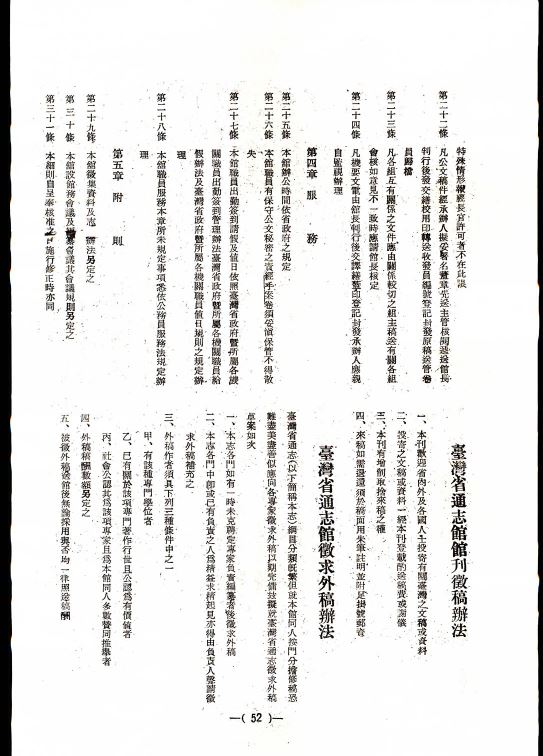 特殊情形報經長官許可者不在此限
第二十二條　凡公文稿件經承辦人擬妥署名蓋章先送主管核閱遞送館長
判行後發交繕校用印轉送收發員編號登記封發原稿送管卷
員歸檔
第二十三條　凡各組互有關係之文件應由關係較切之組主稿送有關各組
會核如意見不一致時應請館長核定
第二十四條　凡機要文電由館長判行後交譯繕蓋印登記封發承辦人應親
自監視辦理
第四章　服務
第二十五條　本館辦公時間依省政府之規定
第二十六條　本館職員有保守公文秘密之責經手案卷須妥慎保管不得散
失
第二十七條　本館職員出勤簽到請假及值日依照臺灣省政府暨所屬各機
關職員出勤簽到管理辦法臺灣省政府暨所屬各機關職員給
假辦法及臺灣省政府暨所屬各機關職員值日規則之規定辦
理
第二十八條　本館職員服務本章所未規定事項悉依公務員服務法規定辦
理
第五章　附則
第二十九條　本館徵集資料及志　辦法另定之
第三十條　本館設館務會議及編纂會議其會議規則另定之
第三十一條　本細則自呈奉核准之日施行修正時亦同
臺灣省通志館館刊徵稿辦法
一、本刊歡迎省內外及各國人士投寄有關臺灣之文稿或資料
二、投寄之文稿或資料一經本刊登載酌送稿費或謝儀
三、本刊有增刪取捨來稿之權
四、來稿如需退還須於稿面用朱筆註明並附足掛號郵資
臺灣省通志館徵求外稿辦法
臺灣省通志(以下簡稱本志)綱目分類旣繁但祇本館同人按門分擔修稿恐
難盡美盡善似應向各專家徵求外稿以期完備茲擬就臺灣省通志徵求外稿
草案如次
一、本志各門如有一時未克聘定專家負責編纂者後徵求外稿
二、本志各門中卽或已有負責之人爲精益求精起見亦得由負責人聲請徵
求外稿補充之
三、外稿作者須具下列三種條件中之一
甲、有該種專門學位者
乙、已有關於該項專門著作行世且公認爲有價值者
丙、社會公認其爲該項專家且爲本館同人多數贊同推舉者
四、外稿稿酬數額另定之
五、被徵外稿送館後無論採用與否均一律照送稿酬
—( 52 )—